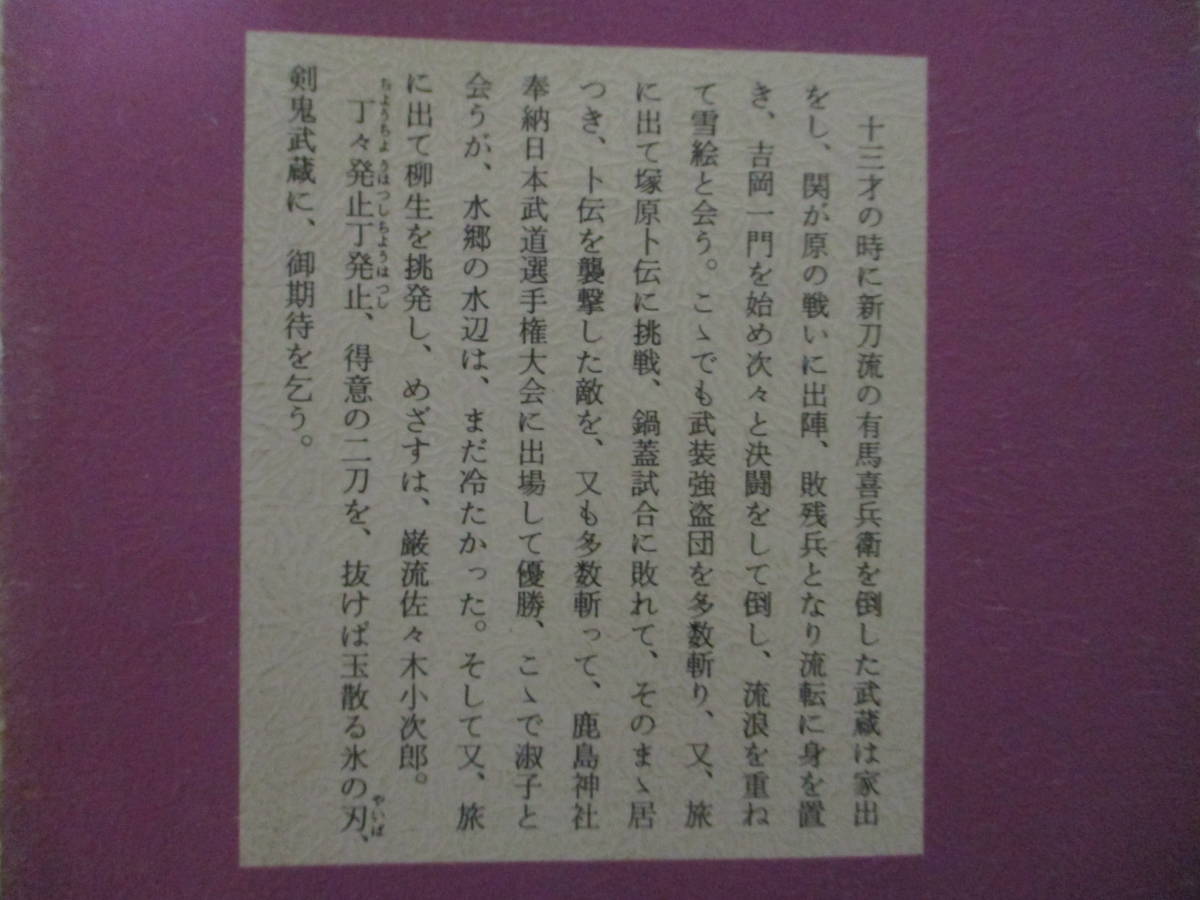 十三才の時に新刀流の有馬喜兵衛を倒した武蔵は家出
をし、関が原の戦いに出陣、敗残兵となり流転に身を置
き、吉岡一門を始め次々と決闘をして倒し、流浪を重ね
て雪絵と会う。こゝでも武装強盗団を多数斬り、又、旅
に出て塚原卜伝に挑戦、鍋蓋試合に敗れて、そのまゝ居
つき、卜伝を襲撃した敵を、又も多数斬って、鹿島神社
奉納日本武道選手権大会に出場して優勝、こゝで淑子と
会うが、水郷の水辺は、まだ冷たかった。そして又、旅
に出て柳生を挑発し、めざすは、巌流佐々木小次郎。
丁々発止丁発止、得意の二刀を、抜けば玉散る氷の刃、
ちょうちょうはつしちょうはつし
やいば
剣鬼武蔵に、御期待を乞う。